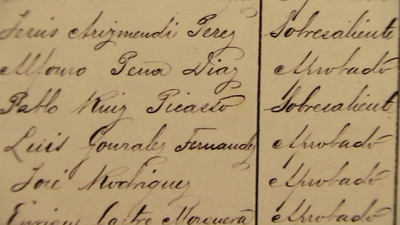 Jesús Arizmendi Perez Sobresaliente
Alfonso Peña Diaz Aprobado
Pablo Ruiz Picasso Sobresaliente
Luis Gonzalez Fernandez Aprobado
José Rodriguez Aprobado
Enrique Castro Aprobado